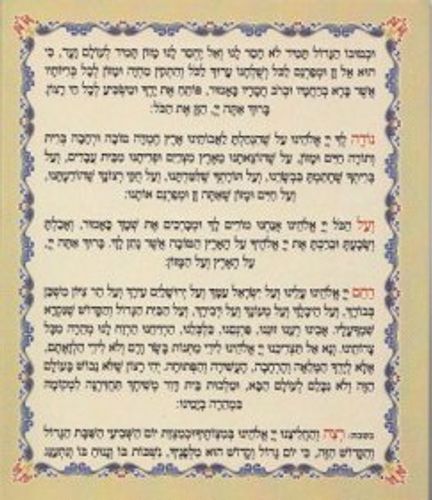 וּבְטוּבוֹ הַגָּדוֹל תָּמִיד לֹא חָסַר לָנוּ וְאַל יֶחְסַר לָנוּ מָזוֹן תָּמִיד לְעוֹלָם וָעֶד, כִּי
הוּא אֵל זָן וּמְפַרְנֵס לַכֹּל וְשֻׁלְחָנוֹ עָרוּךְ לַכֹּל וְהִתְקִין מִחְיָה וּמָזוֹן לְכָל בְּרִיּוֹתָיו
אֲשֶׁר בָּרָא בְרַחֲמָיו וּבְרֹב חֲסָדָיו כָּאָמוּר, פּוֹתֵחַ אֶת יָדֶךָ וּמַשְׂבִּיעַ לְכָל חַי רָצוֹן.
בָּרוּךְ אַתָּה יְיָ, הַזָּן אֶת הַכֹּל:
נוֹדֶה לְךָ יְיָ אֱלֹהֵינוּ עַל שֶׁהִנְחַלְתָּ לַאֲבוֹתֵינוּ אֶרֶץ חֶמְדָּה טוֹבָה וּרְחָבָה בְּרִית
וְתוֹרָה חַיִּים וּמָזוֹן, עַל שֶׁהוֹצֵאתָנוּ מֵאֶרֶץ מִצְרַיִם וּפְדִיתָנוּ מִבֵּית עֲבָדִים, וְעַל
בְּרִיתְךָ שֶׁחָתַמְתָּ בִּבְשָׂרֵנוּ, וְעַל תּוֹרָתְךָ שֶׁלִּמַּדְתָּנוּ, וְעַל חֻקֵּי רְצוֹנָךְ שֶׁהוֹדַעְתָּנוּ,
וְעַל חַיִּים וּמָזוֹן שֶׁאַתָּה זָן וּמְפַרְנֵס אוֹתָנוּ:
וְעַל הַכֹּל יְיָ אֱלֹהֵינוּ אֲנַחְנוּ מוֹדִים לָךְ וּמְבָרְכִים אֶת שְׁמָךְ כָּאָמוּר, וְאָכַלְתָּ
וְשָׂבָעְתָּ וּבֵרַכְתָּ אֶת יְיָ אֱלֹהֶיךָ עַל הָאָרֶץ הַטּוֹבָה אֲשֶׁר נָתַן לָךְ. בָּרוּךְ אַתָּה יְיָ,
עַל הָאָרֶץ וְעַל הַמָּזוֹן:
רַחֵם יְיָ אֱלֹהֵינוּ עָלֵינוּ וְעַל יִשְׂרָאֵל עַמָּךְ וְעַל יְרוּשָׁלַיִם עִירָךְ וְעַל הַר צִיּוֹן מִשְׁכַּן
כְּבוֹדָךְ, וְעַל הֵיכָלָךְ וְעַל מְעוֹנָךְ וְעַל דְּבִירָךְ, וְעַל הַבַּיִת הַגָּדוֹל וְהַקָּדוֹשׁ שֶׁנִּקְרָא
שִׁמְךָ עָלָיו. אָבִינוּ רְעֵנוּ זוּנֵנוּ. פַּרְנְסֵנוּ. כַּלְכְּלֵנוּ. הַרְוִיחֵנוּ הַרְוַח לָנוּ מְהֵרָה מִכָּל
צָרוֹתֵינוּ. וְנָא אַל תַּצְרִיכֵנוּ יְיָ אֱלֹהֵינוּ לִידֵי מַתְּנוֹת בָּשָׂר וָדָם וְלֹא לִידֵי הַלְוָאָתָם,
אֶלָּא לְיָדְךָ הַמְּלֵאָה וְהָרְחָבָה, הָעֲשִׁירָה וְהַפְּתוּחָה. יְהִי רָצוֹן שֶׁלֹּא נֵבוֹשׁ בָּעוֹלָם
הַזֶּה וְלֹא נִכָּלֵם לָעוֹלָם הַבָּא, וּמַלְכוּת בֵּית דָּוִד מְשִׁיחָךְ תַּחֲזִירֶנָּה לִמְקוֹמָהּ
בִּמְהֵרָה בְיָמֵינוּ:
בשבת: רְצֵה וְהַחֲלִיצֵנוּ יְיָ אֱלֹהֵינוּ בְּמִצְוֹתֶיךָ וּבְמִצְוַת יוֹם הַשְּׁבִיעִי הַשַּׁבָּת הַגָּדוֹל
וְהַקָּדוֹשׁ הַזֶּה, כִּי יוֹם גָּדוֹל וְקָדוֹשׁ הוּא מִלְּפָנֶיךָ, נִשְׁבּוֹת בּוֹ וְנָנוּחַ בּוֹ וְנִתְעַנֵּג